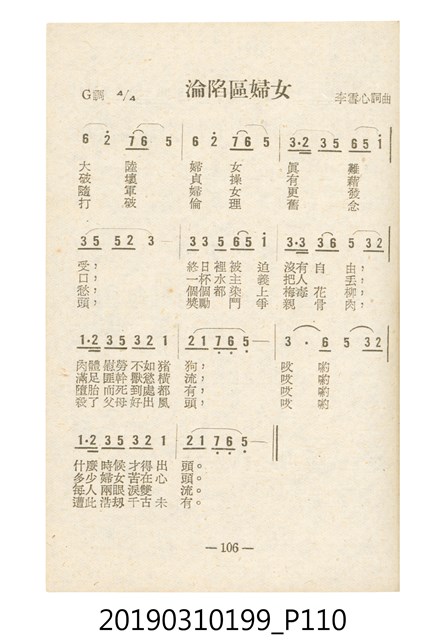 淪陷區婦女
G調 4/4 李雪心詞曲
6 2 76 5 6 2 76 5 3·2 35 651
大陸婦女真難
破壞貞操有藉
隨軍婦女更發
打破倫理舊念
35 52 3 — 33 35 65 1 3·3 36 5 32
受，終日裡被迫沒有自由，
口，一杯水主義把人丟，
愁，個個都染上梅毒花柳，
頭，獎勵鬥爭親骨肉，
1·2 35 321 21765— 3 · 6 5 32
肉體慰勞不如豬狗，哎喲
滿足匪幹獸慾橫流，哎喲
墮胎而死到處都有，哎喲
殺了父母好出風頭，哎喲
1·2 35 321 21765—
什麼時候才得出頭。
多少婦女苦在心頭。
每人兩眼淚雙流。
遭此浩劫千古未有。
—106—
20190310199_P110